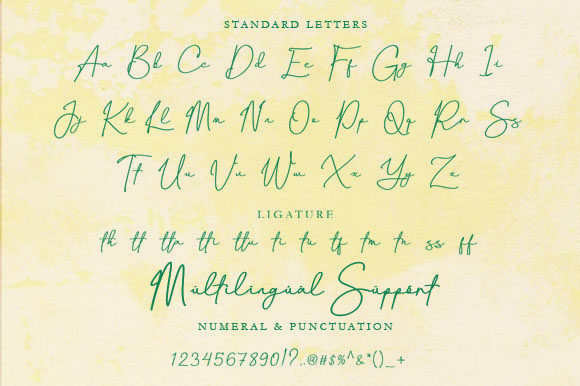 STANDARD LETTERS
Aa Bb Cc Dd Ee Ff Gg Hh Ii
Jj Kk Ll Mm Nn Oo Pp Qq Rr Ss
Tt Uu Vv Ww Xx Yy Zz
LIGATURE
th tt tta tti ttu ti tu tf tm tn ss ff
Múltilingúál Súppórt
NUMERAL & PUNCTUATION
1234567890!?..@#$%^&*()_+